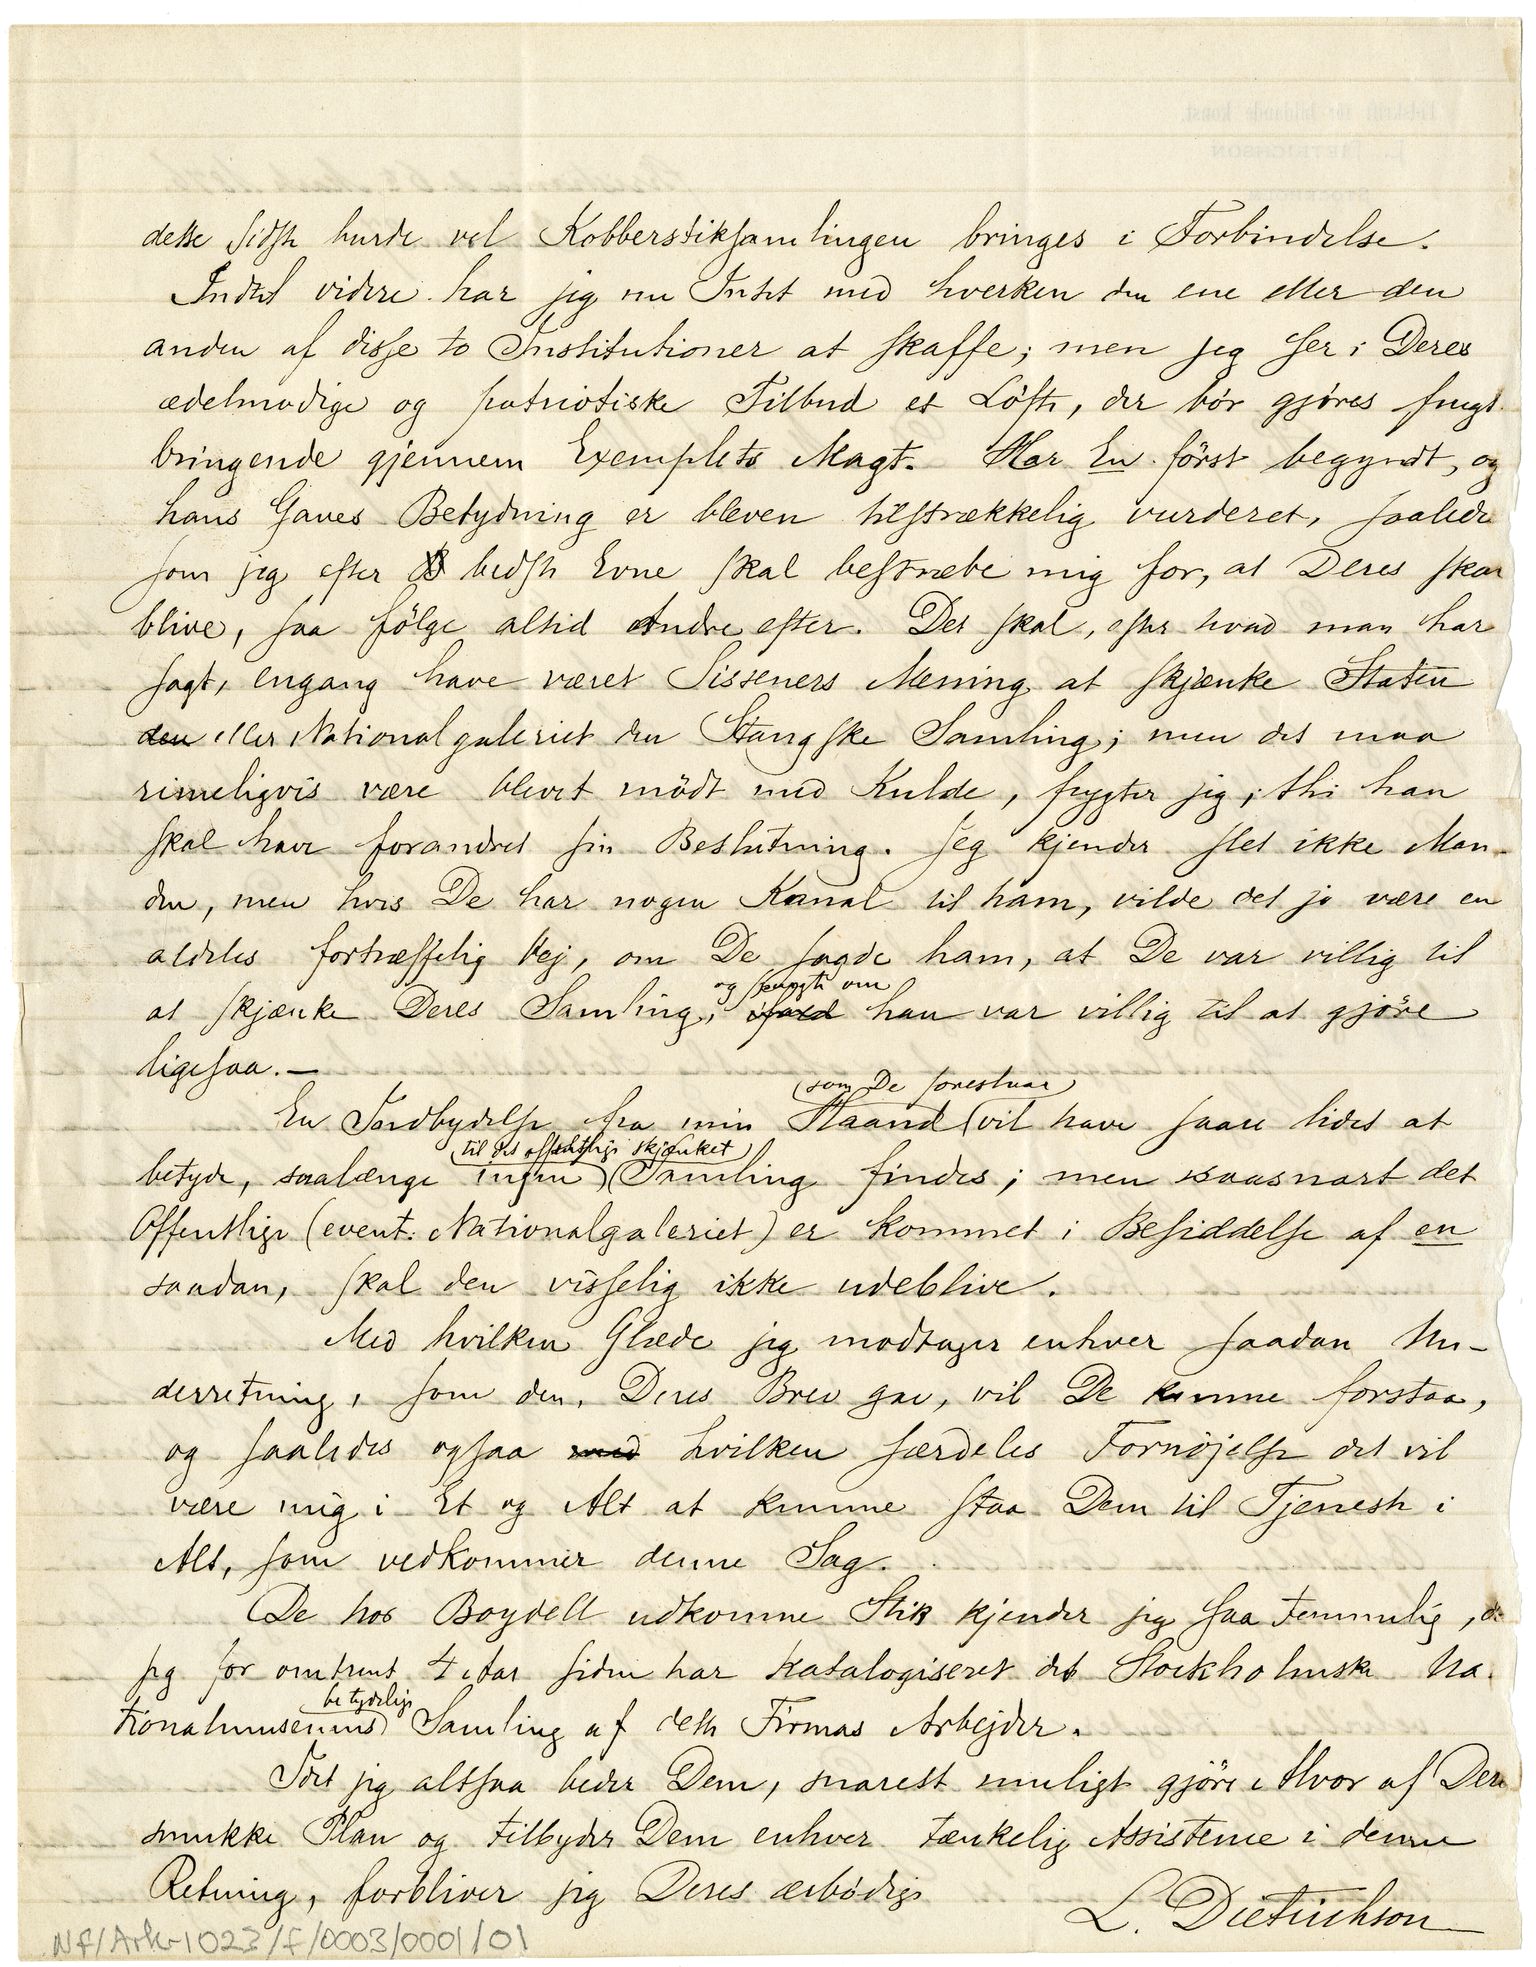 dette sidste burde vel Kobberstiksamlingen bringes i Forbindelse.
Indtil videre har jeg nu Intet med hverken den ene eller den
anden af disse to Institutioner at skaffe; men jeg ser i Deres
ædelmodige og patriotiske Tilbud et Löfte, der bör gjöres frugt
bringende gjennem Exemplets Magt. Har En först begyndt, og
hans Gaves Betydning er bleven tilstrækkelig vurderet, saaledes
som jeg efter bedste Evne skal bestræbe mig for, at Deres skal
blive, saa fölge altid Andre efter. Det skal, efter hvad man har
sagt, engang have været Sisseners Mening at skjænke Staten
den eller Nationalgaleriet den Stangske Samling; men det maa
rimeligvis være blevet mödt med Kulde, frygter jeg; thi han
skal have forandret sin Beslutning. Jeg kjender slet ikke Man-
den, men hvis De har nogen Kanal til ham, vilde det jo være en
aldeles fortræffelig Vej, om De sagde ham, at De var villig til
og spurgte om
at skjænke Deres Samling, ifald han var villig til at gjöre
ligesaa.—
som De foreslaar
En Indbydelse fra min Haand vil have saare lidet at
til det offentlige skjænket
betyde, saalænge ingen Samling findes; men saasnart det
Offentlige (event. Nationalgaleriet) er kommet i Besiddelse af en
saadan, skal den visselig ikke udeblive.
Med hvilken Glæde jeg modtager enhver saadan Un-
derretning, som den, Deres Brev gav, vil De kunne forstaa,
og saaledes ogsaa med hvilken særdeles Fornöjelse det vil
være mig i Et og Alt at kunne staa Dem til Tjeneste i
Alt, som vedkommer denne Sag.
De hos Boydell udkomne Stik kjender jeg saa temmelig, da
jeg for omtrent 4 Aar siden har katalogiseret det Stockholmske Na-
betydelige
tionalmuseums Samling af dette Firmas Arbejder.
Idet jeg altsaa beder Dem, snarest muligt gjöre Alvor af Deres
smukke Plan og tilbyder Dem enhver tænkelig Assistence i denne
Retning, forbliver jeg Deres ærbödige
L. Dietrichson
NF/Ark-1023/F/0003/0001/01